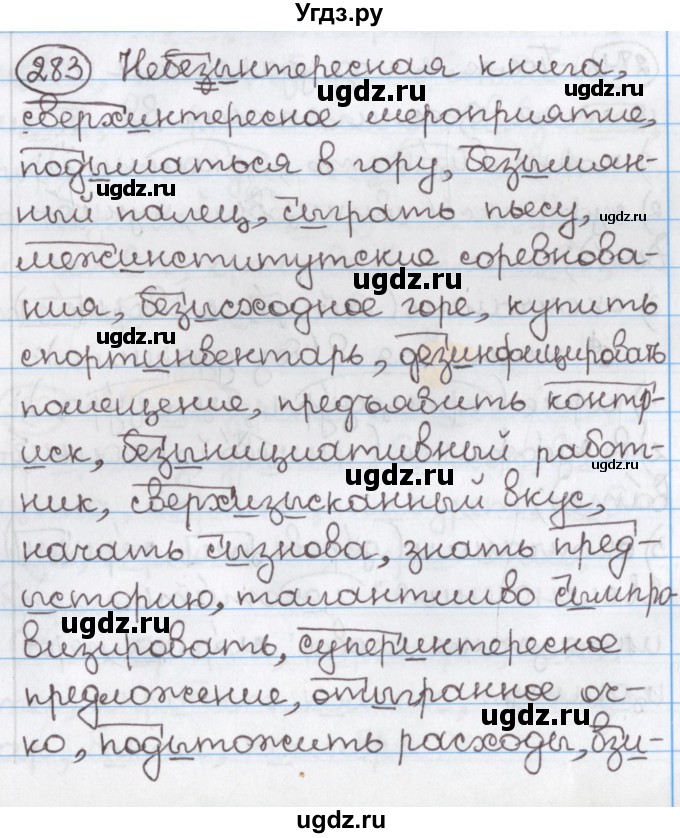 Угдз.ру
283 Небезынтересная книга,
сверхинтересное мероприятие,
подыматься в гору, безымян-
ный палец, сыграть пьесу,
межинститутские соревнова-
ния, безысходное горе, купить
спортинвентарь, дезинфицировать
помещение, предъявить контр-
иск, безынициативный работ-
ник, сверхизысканный вкус,
начать сызнова, знать пред-
ысторию, талантливо сымпро-
визировать, суперинтересное
предложение, отыгранное оч-
ко, подытожить расходы, взи-
ugdz.ru
ugdz.ru
ugdz.ru
ugdz.ru
ugdz.ru
ugdz.ru
ugdz.ru
ugdz.ru
ugdz.ru
ugdz.ru
ugdz.ru
ugdz.ru
ugdz.ru
ugdz.ru
Угдз.ру